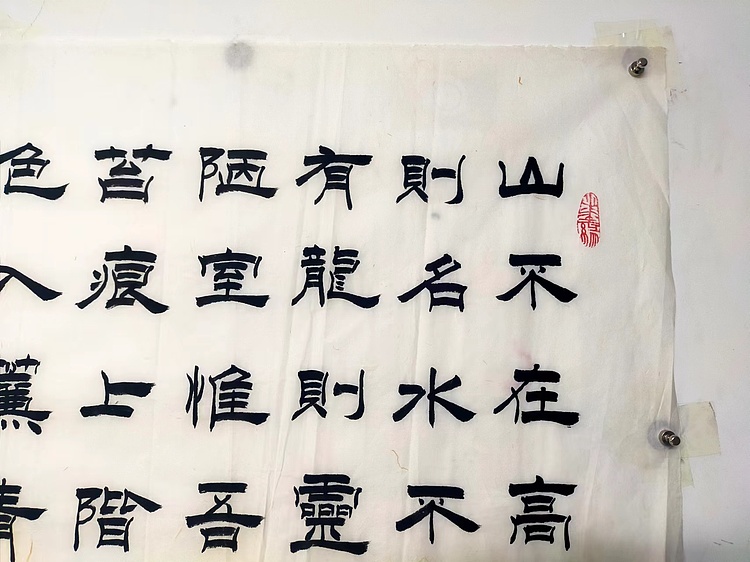 山不在高
則名水不
有龍則靈
陋室惟吾
苔痕上階
色入簾青